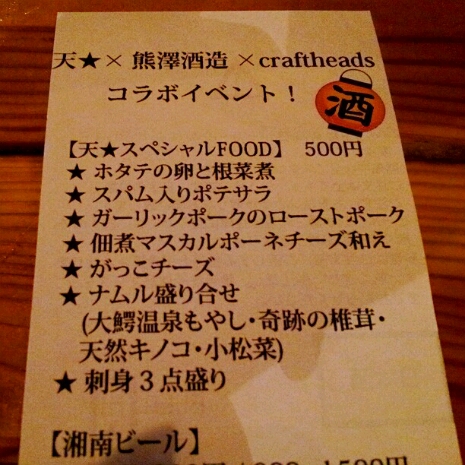 天★×熊澤酒造×craftheads
コラボイベント！
酒
【天★スペシャルFOOD】 500円
★ホタテの卵と根菜煮
★スパム入りポテサラ
★ガーリックポークのローストポーク
★佃煮マスカルポーネチーズ和え
★がっこチーズ
★ナムル盛り合せ
(大鰐温泉もやし・奇跡の椎茸・
天然キノコ・小松菜)
★刺身３点盛り
【湘南ビール】